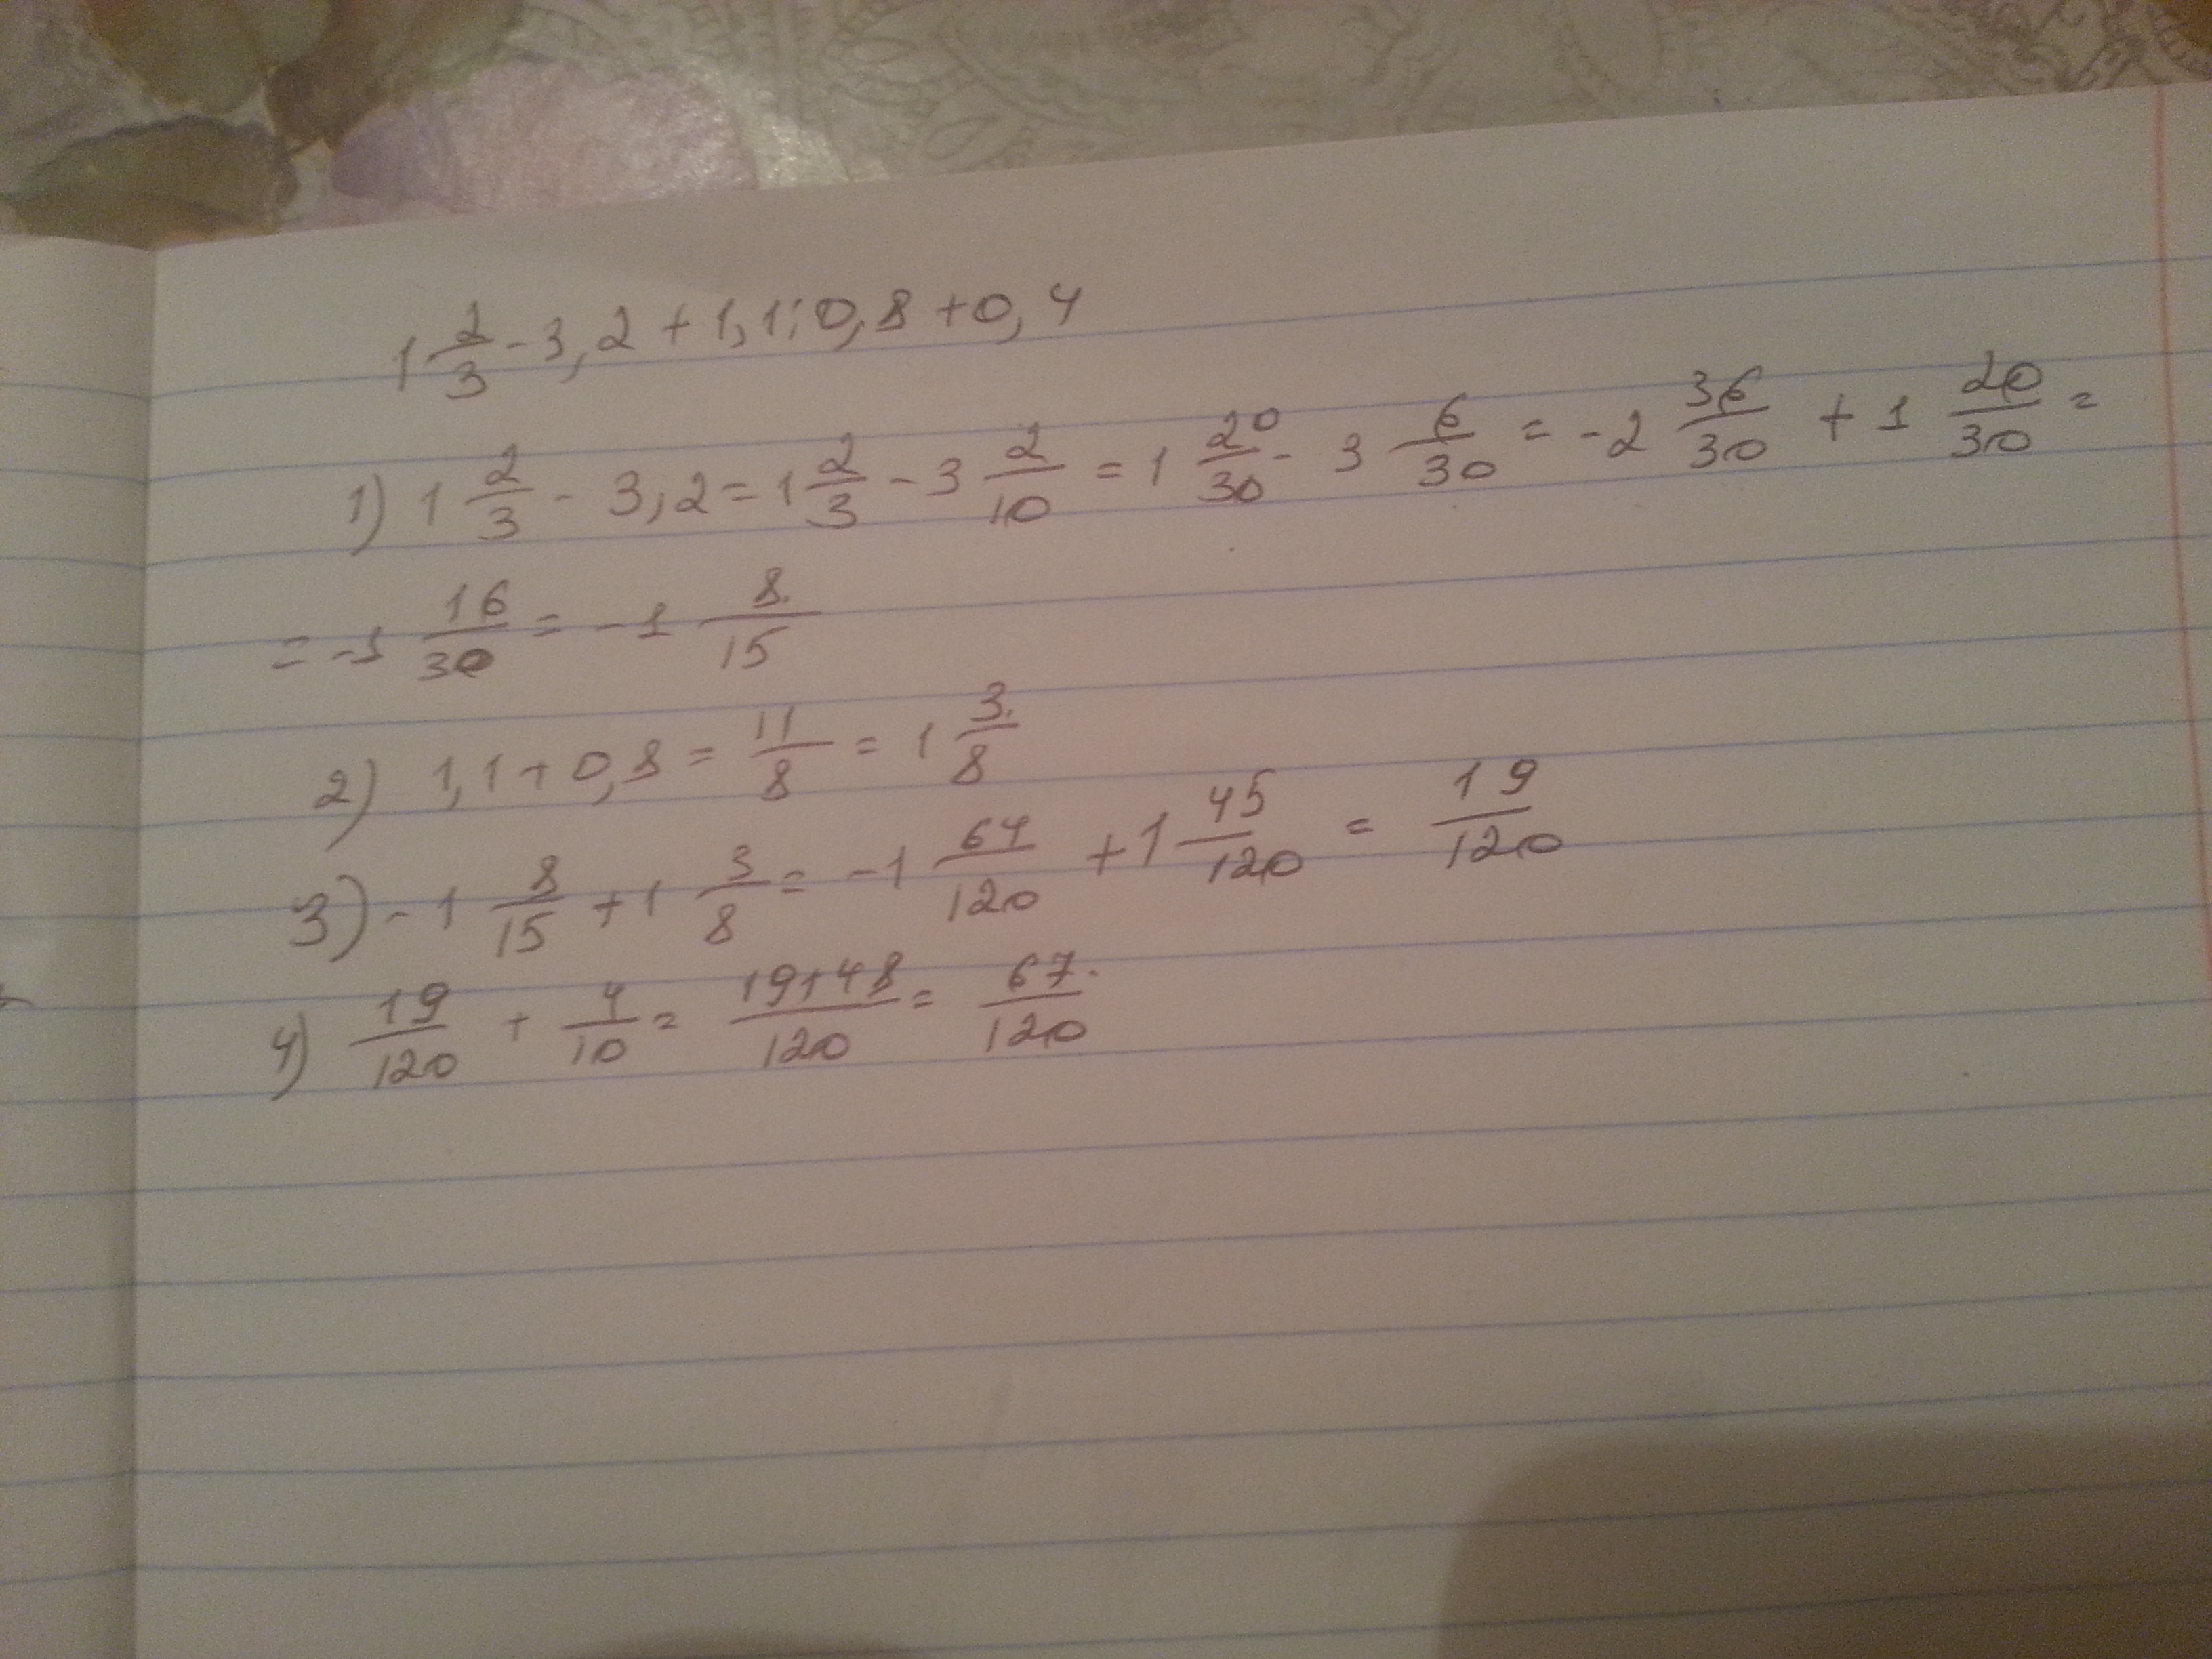 1 2/3 - 3,2 + 1,1:0,8 + 0,4
1) 1 2/3 - 3,2 = 1 2/3 - 3 2/10 = 1 20/30 - 3 6/30 = -2 36/30 + 1 20/30 =
= -1 16/30 = -1 8/15
2) 1,1+0,8 = 11/8 = 1 3/8
3) -1 8/15 + 1 3/8 = -1 64/120 + 1 45/120 = 19/120
4) 19/120 + 4/10 = 19+48/120 = 67/120